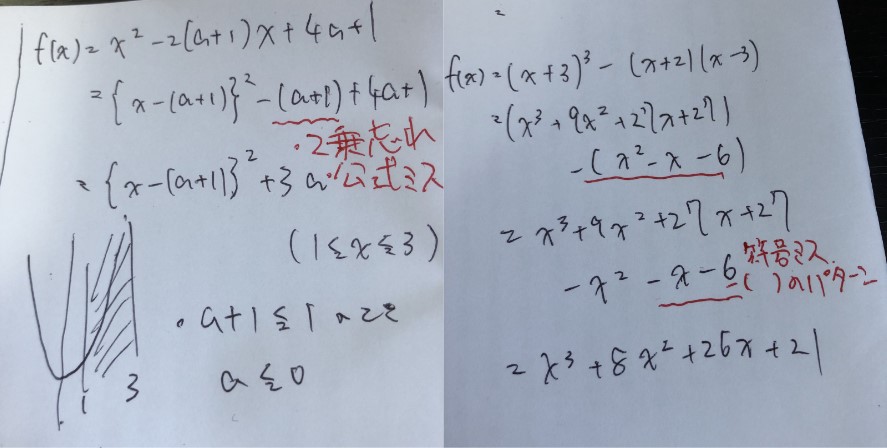 f(x)=x²-2(a+1)x+4a+1
={x-(a+1)}²-(a+1)+4a+1
・2乗忘れ
={x-(a+1)}²+3a
・公式ミス
(1≦x≦3)
・a+1≦1のとき
a≦0
1 3
=
f(x)=(x+3)³-(x+2)(x-3)
=(x³+9x²+27x+27)
-(x²-x-6)
=x³+9x²+27x+27
-x²-x-6
符号ミス
( )のパターン
=x³+8x²+26x+21